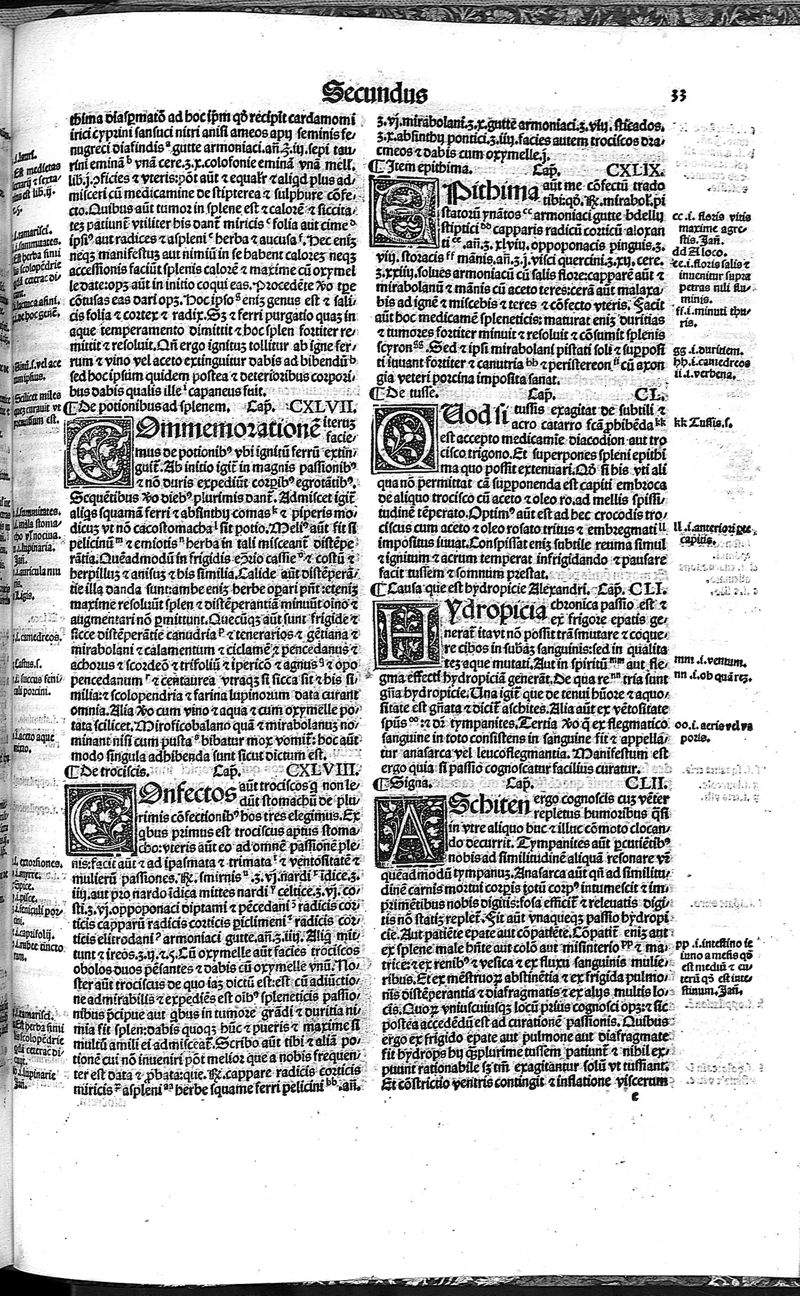 Secundus
33
thima diaspmatō ad hoc ipm qō recipit cardamomi
irici cyprini sansuci nitri anisi ameos apij seminis fe⸗
nugreci diafindis gutte armoniaci.añ.ʒ.iij.sepi tau⸗
rini eminā vnā cere.ʒ.x.colofonie eminā vnā mell.
lib.j.ꝯficies ⁊ vteris: pōt aūt ⁊ equalr ⁊ aliqd plus ad⸗
misceri cū medicamine de stipterea ⁊ sulphure cōfe⸗
cto. Quibus aūt tumor in splene est ⁊ calorē ⁊ siccita⸗
tez patiunt̄ vtiliter his dant̄ miricis folia aut cime
ipsiꝰ aut radices ⁊ aspleni herba ⁊ aucusa. Hec eniz
neqz manifestuz aut nimiū in se habent calorez neqz
accessionis faciūt splenis calorē ⁊ maxime cū oxymel
le date: opz aūt in initio coqui eas. Procedēte ꝟo tpe
cōtusas eas dari opz. Hoc ipso eniz genus est ⁊ sali⸗
cis folia ⁊ cortex ⁊ radix. Sz ⁊ ferri purgatio quaz in
aque temperamento dimittit ⁊ hoc splen fortiter re⸗
mittit ⁊ resoluit. Qn̄ ergo ignituz tollitur ab igne fer⸗
rum ⁊ vino vel aceto extinguitur dabis ad bibendū
sed hoc ipsum quidem postea ⁊ deterioribus corpori⸗
bus dabis qualis ille capaneus fuit.
¶ De potionibus ad splenem. Cap. CXLVII.
COmmemorationē iteruz
facie⸗
mus de potionibꝰ vbi ignitū ferrū extin⸗
guit̄. Ab initio igit̄ in magnis passionibꝰ
⁊ nō duris expediūt corpibꝰ egrotātibꝰ.
Sequētibus ꝟo diebꝰ plurimis dant̄. Admiscet igit̄
aliqs squamā ferri ⁊ absinthij comas ⁊ piperis mo⸗
dicuz vt nō cacostomacha sit potio. Meliꝰ aūt fit si
pelicinū ⁊ emiotis herba in tali misceant̄ distēpe⸗
rātia. Quēadmodū in frigidis eꝯrio cassie ⁊ costū ⁊
herpilluz ⁊ anisuz ⁊ his similia. Calide aūt distēperā⸗
tie illa danda sunt: ambe eniz herbe opari pn̄t: eteniz
maxime resoluūt splen ⁊ distēperantiā minuūt oino ⁊
augmentari nō pmittunt. Quecūqz aūt sunt frigide ⁊
sicce distēperātie canudria ⁊ tenerarios ⁊ gētiana ⁊
mirabolani ⁊ calamentum ⁊ ciclame ⁊ pencedanus ⁊
achorus ⁊ scordeō ⁊ trifoliū ⁊ ipericō ⁊ agnus ⁊ opo
pencedanum ⁊ centaurea vtraqz si sicca sit ⁊ his si⸗
milia: ⁊ scolopendria ⁊ farina lupinorum data curant
omnia. Alia ꝟo cum vino ⁊ aqua ⁊ cum oxymelle po⸗
tata scilicet. Miroficobalano quā ⁊ mirabolanuz no⸗
minant nisi cum pusta bibatur mox vomit̄: hoc aūt
modo singula adhibenda sunt sicut dictum est.
¶ De trociscis. Cap. CXLVIII.
COnfectos aūt trociscos q non le⸗
dūt stomachū de plu⸗
rimis cōfectionibꝰ hos tres elegimus. Ex
qbus primus est trociscus aptus stoma
cho: vteris aūt eo ad omnē passionē ple⸗
nis: facit aūt ⁊ ad ipasmata ⁊ trimata ⁊ ventositatē ⁊
mulierū passiones. ℞. smirnis .ʒ.vj.nardi īdice.ʒ.
iiij.aut pro nardo īdica mittes nardi celtice.ʒ.vj.co⸗
sti.ʒ.vj.oppoponaci diptami ⁊ pēcedani radicis cor⸗
ticis capparū radicis corticis piclimeni radicis cor⸗
ticis elitrodani armoniaci gutte.añ.ʒ.iiij. Aliq mit⸗
tunt ⁊ ireos.ʒ.ij.⁊.s. Cū oxymelle aūt facies trociscos
obolos duos pēsantes ⁊ dabis cū oxymelle vnū. No⸗
ster aūt trociscus de quo iaz dictū est: est cū adiūctio⸗
ne admirabilis ⁊ expediēs est oibꝰ spleneticis passio⸗
nibus pcipue aut qbus in tumore grādi ⁊ duritia ni⸗
mia fit splen: dabis quoqz hūc ⁊ pueris ⁊ maxime si
multū amili ei admisceat̄. Scribo aūt tibi ⁊ aliā po⸗
tionē cui nō inueniri pōt melior que a nobis frequen⸗
ter est data ⁊ pbata: que. ℞. cappare radicis corticis
miricis aspleni herbe squame ferri pelicini .añ.
ʒ.vj.mirabolani.ʒ.x.guttē armoniaci.ʒ.viij.stiēados.
ʒ.x.absinthij pontici.ʒ.iij.facies autem trociscos dra⸗
cmeos ⁊ dabis cum oxymelle.j.
¶ Item epithima. Cap. CXLIX.
EPithima aūt me cōfectū trado
tibi: qō. ℞. mirabol. pi
statorū ynātos armoniaci gutte bdellij
stiptici capparis radicū corticū aloxan
ti .añ.ʒ.xlvij.oppoponacis pinguis.ʒ.
viij.storacis mānis.añ.ʒ.j.visci quercini.ʒ.xij.cere.
ʒ.xxiij.solues armoniacū cū salis flore: capparē aūt ⁊
mirabolanū ⁊ mānis cū aceto teres: cerā aūt malaxa⸗
bis ad ignē ⁊ miscebis ⁊ teres ⁊ cōfecto vteris. Facit
aūt hoc medicamē spleneticis: maturat eniz duritias
⁊ tumores fortiter minuit ⁊ resoluit ⁊ cōsumit splenis
scyron. Sed ⁊ ipsi mirabolani pistati soli ⁊ supposi
ti iuuant fortiter ⁊ canutria ⁊ peristereon cū axon
gia veteri porcina imposita sanat.
¶ De tusse. Cap. CL.
QUod si tussis exagitat de subtili ⁊
acro catarro scā phibēda
est accepto medicamie diacodion aut tro
cisco trigono. Et superpones spleni epithi
ma quo possit extenuari. Qō si bis vti ali
qua nō permittat cā supponenda est capiti embroca
de aliquo trocisco cū aceto ⁊ oleo ro. ad mellis spissi⸗
tudinē tēperato. Optimꝰ aūt est ad hec crocodis tro⸗
ciscus cum aceto ⁊ oleo rosato tritus ⁊ embregmati
impositus iuuat. Conspissat eniz subtile reuma simul
⁊ ignitum ⁊ acrum temperat infrigidando ⁊ pausare
facit tussem ⁊ somnum prestat.
¶ Causa que est hydropicie Alexandri. Cap. CLI.
HYdropicia chronica passio est ⁊
ex frigore epatis ge⸗
nerat̄ ita vt nō possit trāsmutare ⁊ coque⸗
re cibos in subaz sanguinis: sed in qualita
tez aque mutati. Aut in spiritū aut fle⸗
gma effecti hydropiciā generāt. De qua re tria sunt
gn̄a hydropicie. Una igit̄ que de tenui huōre ⁊ aquo⸗
sitate est gn̄ata ⁊ dicit̄ aschites. Alia aūt ex vētositate
spūs : ⁊ dr̄ tympanites. Tertia ꝟo q ex flegmatico
sanguine in toto consistens in sanguine fit ⁊ appella⸗
tur anasarca vel leucoflegmantia. Manifestum est
ergo quia si passio cognoscatur facilius curatur.
¶ Signa. Cap. CLII.
ASchiten ergo cognoscis cuz vēter
repletus humoribus qsi
in vtre aliquo huc ⁊ illuc cōmoto clocan⸗
do decurrit. Tympanites aūt pcutiētibꝰ
nobis ad similitudinē aliquā resonare vr̄
quēadmodū tympanuz. Anasarca aūt qn̄ ad similitu⸗
dinē carnis mortui corpis totū corpꝰ intumescit ⁊ im⸗
primētibus nobis digitis: fosa efficit̄ ⁊ releuatis digi
tis nō statiz replet̄. Fit aūt vnaqueqz passio hydropi
cie. Aut patiēte epate aut cōpatiēte. Cōpatit̄ eniz aut
ex splene male hn̄te aut colō aut misinterio ⁊ ma⸗
trice: ⁊ ex renibꝰ ⁊ vesica ⁊ ex fluxu sanguinis mulie⸗
ribus. Et ex mēstruoꝝ abstinētia ⁊ ex frigida pulmo⸗
nis distēperantia ⁊ diafragmatis ⁊ ex alijs multis lo⸗
cis. Quoꝝ vniuscuiusqz locū prius cognosci opz: ⁊ sic
postea accedēdū est ad curationē passionis. Quibus
ergo ex frigido epate aut pulmone aut diafragmate
fit hydrops hij qplurime tussem patiunt̄ ⁊ nihil ex⸗
puunt rationabile sz tm̄ exagitantur solū vt tussiant.
Et cōstrictio ventris contingit ⁊ inflatione viscerum
e
cc .i. floris vitis
maxime agre⸗
stis. Jañ.
dd Aloco.
ee .i. floris salis ⁊
inuenitur supra
petras nili flu⸗
minis.
ff .i. minuti thu⸗
ris.
gg .i. duritiem.
hh .i. camedreos
ii .i. verbena.
kk Tussis.s.
ll .i. anteriori pte
capitis.
mm .i. ventum.
nn .i. ob quā rez.
oo .i. aeris vel va
poris.
pp .i. intestino ie
iuno a mēsis qō
est mediū ⁊ cu⸗
terū qō est inte⸗
stinum. Jañ.